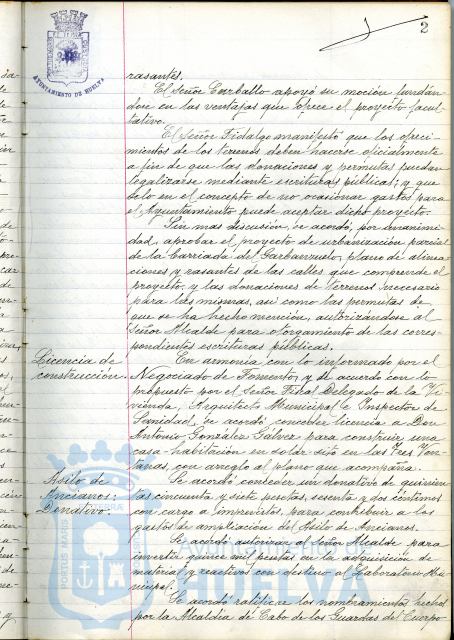 2
AYUNTAMIENTO DE HUELVA
rasantes.
El Señor Carballo apoyó su moción fundán
dose en las ventajas que ofrece el proyecto facul
tativo.
El Señor Fidalgo manifestó que los ofreci-
mientos de los terrenos deben hacerse oficialmente
a fin de que las donaciones y permutas puedan
legalizarse mediante escrituras públicas; y que
solo en el concepto de no ocasionar gastos para
el Ayuntamiento puede aceptar dicho proyecto.
Sin mas discusión, se acordó, por unanimi
dad, aprobar el proyecto de urbanización parcial
de la Barriada del Garbanzuelo, plano de alinea
ciones y rasantes de las calles que comprende el
proyecto y las donaciones de terrenos necesario
para las mismas, así como las permutas de
que se ha hecho mención, autorizándose al
Señor Alcalde para otorgamiento de las corres-
pondientes escrituras públicas.
Licencia de
construcción.
En armonía con lo informado por el
Negociado de Fomento, y de acuerdo con lo
propuesto por el Señor Fiscal Delegado de la Vi-
vienda, Arquitecto Municipal e Inspector de
Sanidad, se acordó conceder licencia a Don
Antonio González Gálvez para construir una
casa-habitación en solar sito en las Tres Ven-
tanas, con arreglo al plano que acompaña.
Asilo de
Ancianos:
Donativo.
Se acordó conceder un donativo de quinien
tas cincuenta y siete pesetas, sesenta y dos céntimos
con cargo a imprevistos, para contribuir a los
gastos de ampliación del Asilo de Ancianos.
Se acordó autorizar al Señor Alcalde para
invertir quince mil pesetas en la adquisición de
material y reactivos con destino al Laboratorio Mu
nicipal.
Se acordó ratificar los nombramientos hechos
por la Alcaldía de Cabo de los Guardas del Cuerpo
PORTUS MARIS
HUELVA